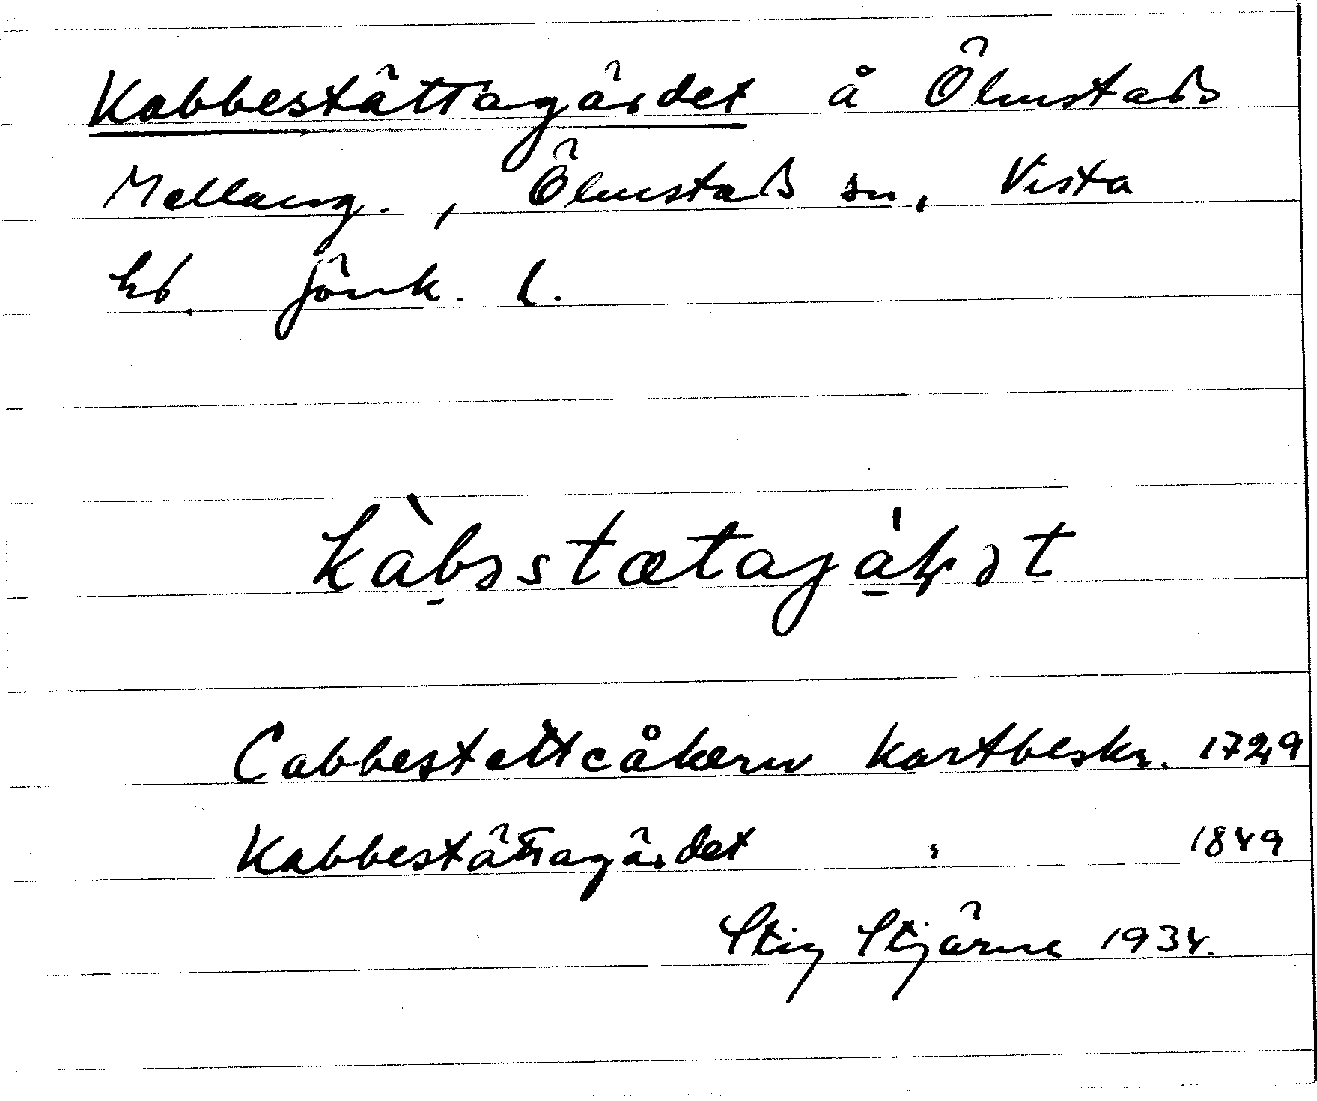 Kabbestättagärdet å Ölmstads
Mellang., Ölmstads sn, Vista
hd Jönk. l.
kàbəstætajáʈət
Cabbestettcåkern Kartbeskr. 1729
Kabbestättagärdet " 1849
Stig Stjärne 1934.